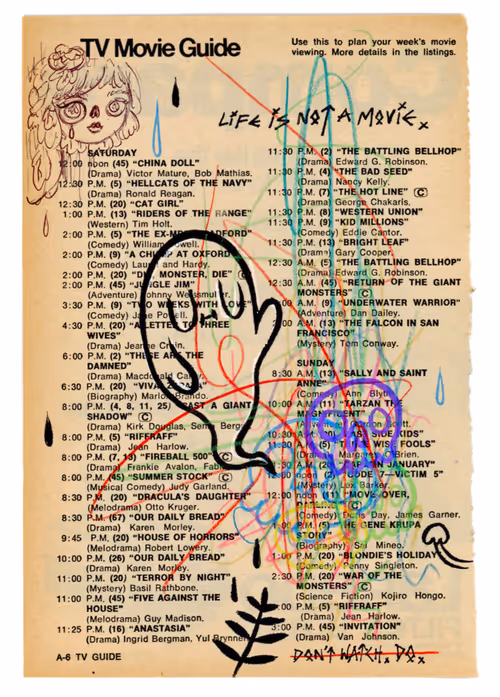 TV Movie Guide
Use this to plan your week's movie
viewing. More details in the listings.
LIFE IS NOT A MOVIE.
SATURDAY
12:00 noon (45) "CHINA DOLL"
(Drama) Victor Mature, Bob Mathias.
12:30 P.M. (5) "HELLCATS OF THE NAVY"
(Drama) Ronald Reagan.
12:30 P.M. (20) "CAT GIRL"
1:00 P.M. (13) "RIDERS OF THE RANGE"
(Western) Tim Holt.
2:00 P.M. (5) "THE
(Comedy) William
2:00 P.M. (9) "A CHUMP AT OXFORD"
(Comedy) Laurel and Hardy.
2:00 P.M. (20) "DIE, MONSTER, DIE" Ⓒ
2:00 P.M. (45) "JUNGLE JIM"
(Adventure) Johnny Weissmuller.
3:30 P.M. (9) "TWO WEEKS WITH LOVE"
(Comedy) Jane Powell.
4:30 P.M. (20) "A LETTER THREE
WIVES"
(Drama) Jeanne Crain.
6:00 P.M. (2) "THESE ARE THE
DAMNED"
(Drama) Macdonald Carey.
6:30 P.M. (20) "VIVA
(Biography) Marlon Brando.
8:00 P.M. (4, 8, 11, 25) "CAST A GIANT
SHADOW" Ⓒ
(Drama) Kirk Douglas, Senta Berger.
8:00 P.M. (5) "RIFFRAFF"
(Drama) Jean Harlow.
8:00 P.M. (7, 13) "FIREBALL 500" Ⓒ
(Drama) Frankie Avalon, Fabian.
8:00 P.M. (45) "SUMMER STOCK"
(Musical Comedy) Judy Garland.
8:30 P.M. (20) "DRACULA'S DAUGHTER"
(Melodrama) Otto Kruger.
8:30 P.M. (67) "OUR DAILY BREAD"
(Drama) Karen Morley.
9:45 P.M. (20) "HOUSE OF HORRORS"
(Melodrama) Robert Lowery.
10:00 P.M. (26) "OUR DAILY BREAD"
(Drama) Karen Morley.
11:00 P.M. (20) "TERROR BY NIGHT"
(Mystery) Basil Rathbone.
11:00 P.M. (45) "FIVE AGAINST THE
HOUSE"
(Melodrama) Guy Madison.
11:25 P.M. (16) "ANASTASIA"
(Drama) Ingrid Bergman, Yul Brynner.
11:30 P.M. (2) "THE BATTLING BELLHOP"
(Drama) Edward G. Robinson.
11:30 P.M. (4) "THE BAD SEED"
(Drama) Nancy Kelly.
11:30 P.M. (7) "THE HOT LINE" Ⓒ
(Drama) George Chakaris.
11:30 P.M. (8) "WESTERN UNION"
11:30 P.M. (9) "KID MILLIONS"
(Comedy) Eddie Cantor.
11:30 P.M. (13) "BRIGHT LEAF"
(Drama) Gary Cooper.
12:30 A.M. (5) "THE BATTLING BELLHOP"
(Drama) Edward G. Robinson.
12:30 A.M. (45) "RETURN OF THE GIANT
MONSTERS" Ⓒ
A.M. (9) "UNDERWATER WARRIOR"
(Adventure) Dan Dailey.
A.M. (13) "THE FALCON IN SAN
FRANCISCO"
(Mystery) Tom Conway.
SUNDAY
8:30 A.M. (13) "SALLY AND SAINT
ANNE"
(Comedy) Ann Blyth.
10:00 A.M. (11) "TARZAN THE
MAGNIFICENT"
(Adventure) Gordon Scott.
KIDS"
WISE FOOLS"
(Drama) Margaret O'Brien.
IN JANUARY"
12:00 CODE 7—VICTIM 5"
(Mystery) Lex Barker.
12:00 noon "MOVE OVER,
DARLING" Ⓒ
(Comedy) Doris Day, James Garner.
P.M. GENE KRUPA
STORY"
(Biography) Sal Mineo.
1:00 P.M. (20) "BLONDIE'S HOLIDAY"
(Comedy) Penny Singleton.
2:30 P.M. (20) "WAR OF THE
MONSTERS" Ⓒ
(Science Fiction) Kojiro Hongo.
P.M. (5) "RIFFRAFF"
(Drama) Jean Harlow.
3:00 P.M. (45) "INVITATION"
(Drama) Van Johnson.
DON'T WATCH. DO.
A-6 TV GUIDE